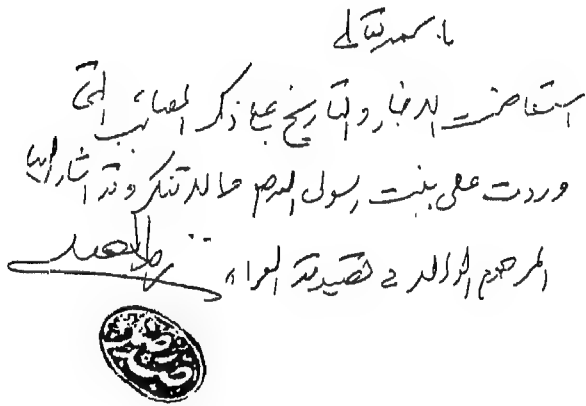 باسمه تعالى
استفاضت الاخبار والتاريخ على ذكر المصائب التي
وردت على بنت رسول الله مما لا تنكر وقد أشار إليها
المرحوم الوالد في قصيدته الغراء،